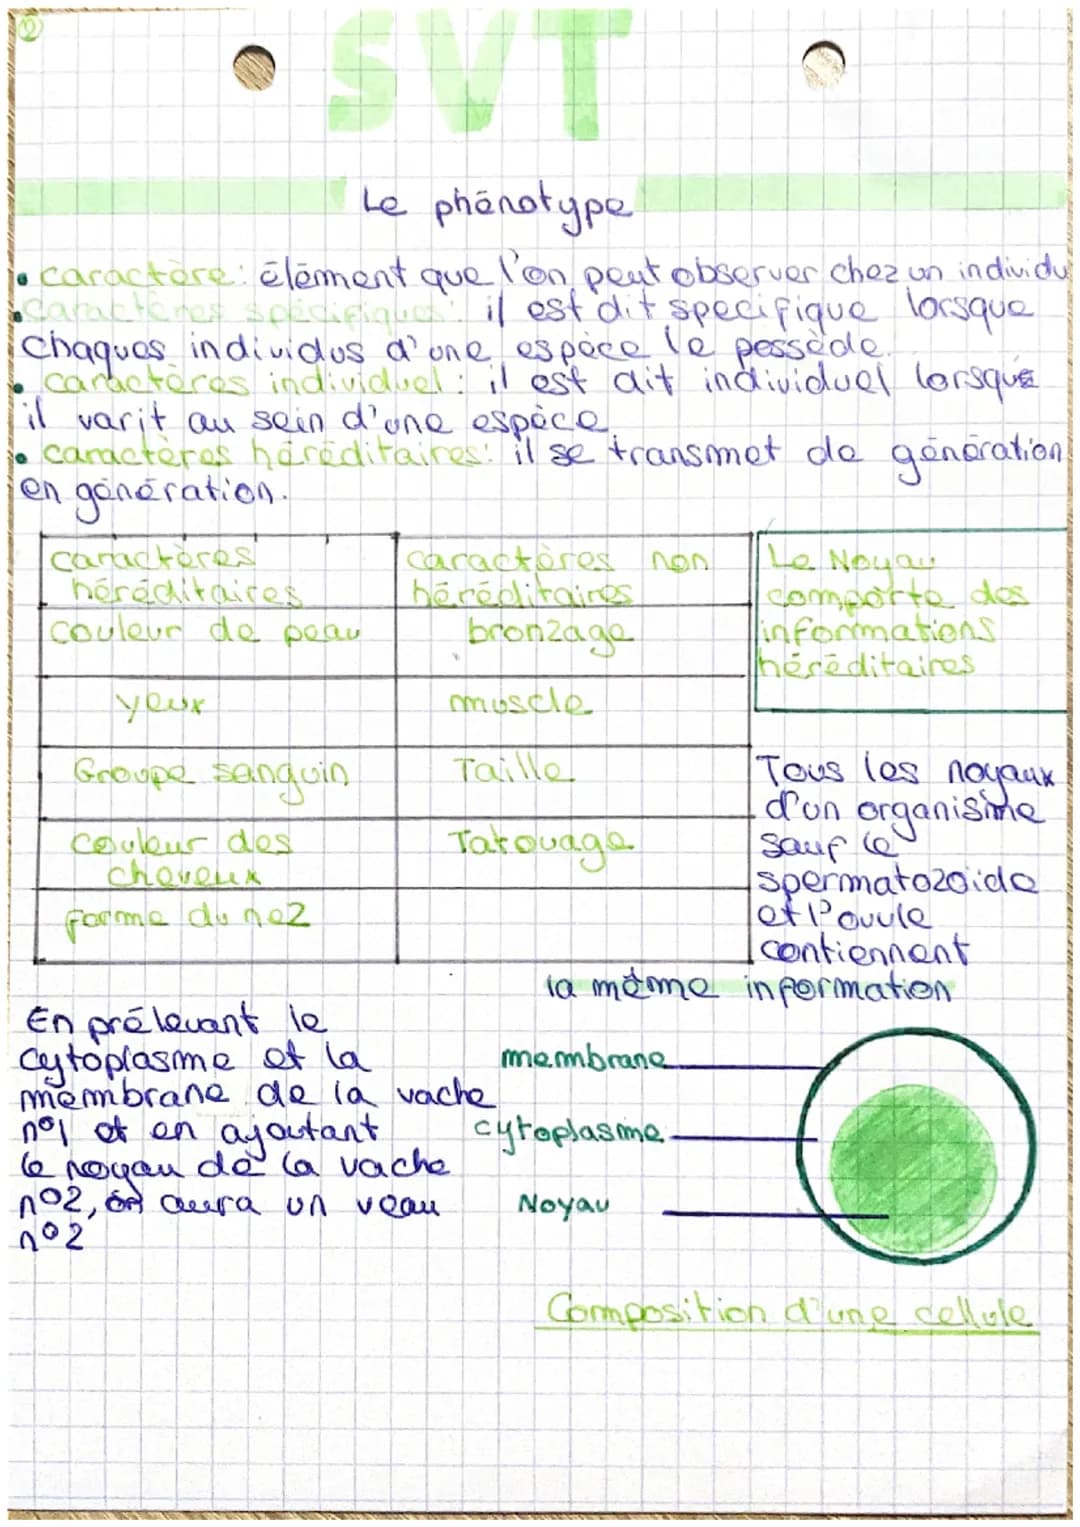 ②
SVT
Le phénotype
• caractère : élément que l'on peut observer chez un individu
• caractères spécifiques : il est dit specifique lorsque
chaques individus d'une espèce le possède.
• caractères individuel : il est dit individuel lorsque
il varit au sein d'une espèce
• caractères héréditaires : il se transmet de génération
en génération.
caractères héréditaires
caractères non héréditaires
couleur de peau
bronzage
yeux
muscle
Groupe sanguin
Taille
couleur des cheveux
Tatouage
forme du nez
Le Noyau
comporte des
informations
héréditaires
Tous les noyaux
d'un organisme
sauf le
spermatozoïde
et l'ovule
contiennent
la même information
En prélevant le
cytoplasme et la
membrane de la vache
n°1 et en ajoutant
le noyau de la vache
n°2, on aura un veau
n°2
membrane
cytoplasme
Noyau
Composition d'une cellule